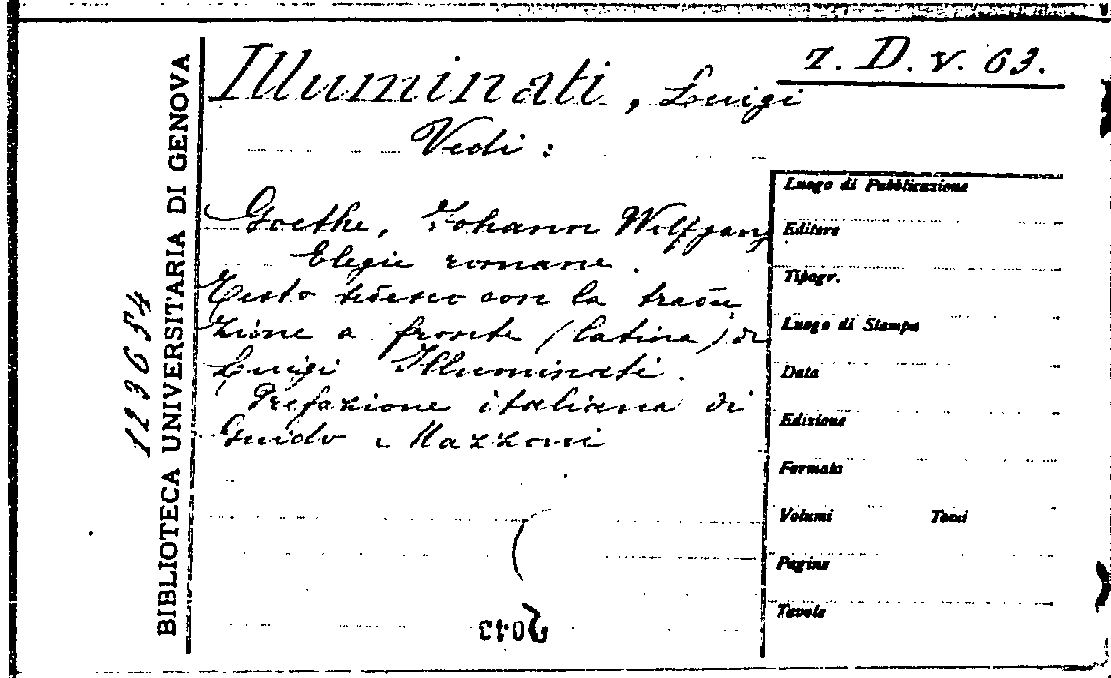 7. D. V. 63.
Illuminati, Luigi
Vedi:
Goethe, Johann Wolfgang
Elegie romane.
Testo tedesco con la tradu
zione a fronte (latina) di
Luigi Illuminati.
Prefazione italiana di
Guido Mazzoni
BIBLIOTECA UNIVERSITARIA DI GENOVA
123654
Luogo di Pubblicazione
Editore
Tipogr.
Luogo di Stampa
Data
Edizione
Formato
Volumi Tomi
Pagine
Tavole